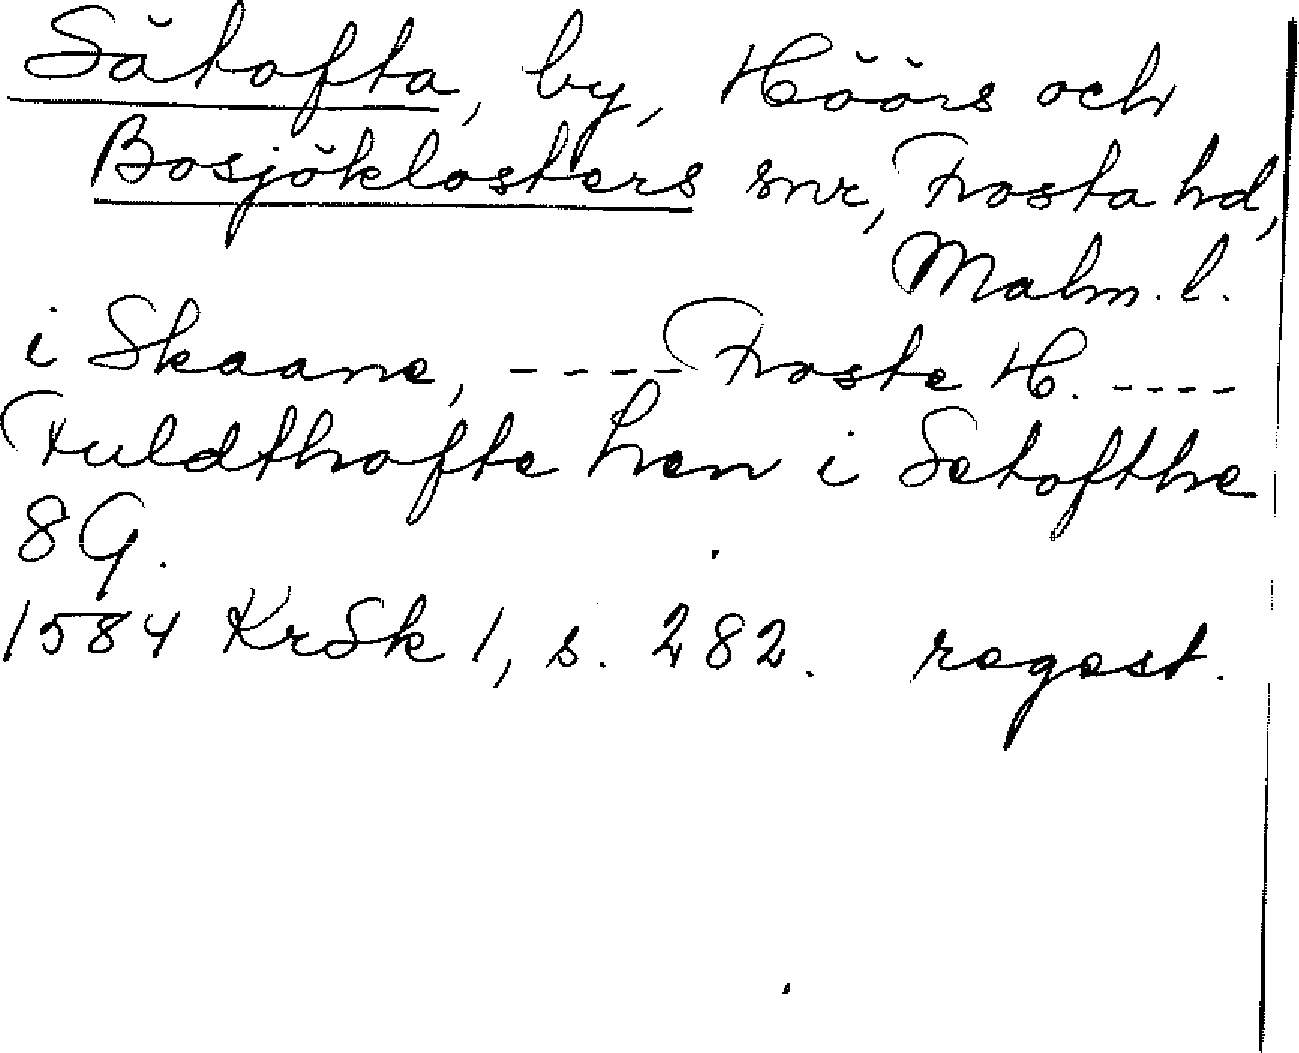 Sätofta, by, Höörs och
Bosjöklosters snr, Frosta hd,
Malm. l.
i Skaane, ---- Froste H. ----
Fuldthofte Len i Setofthe
8 G.
1584 KrSk 1, s. 282. regest.